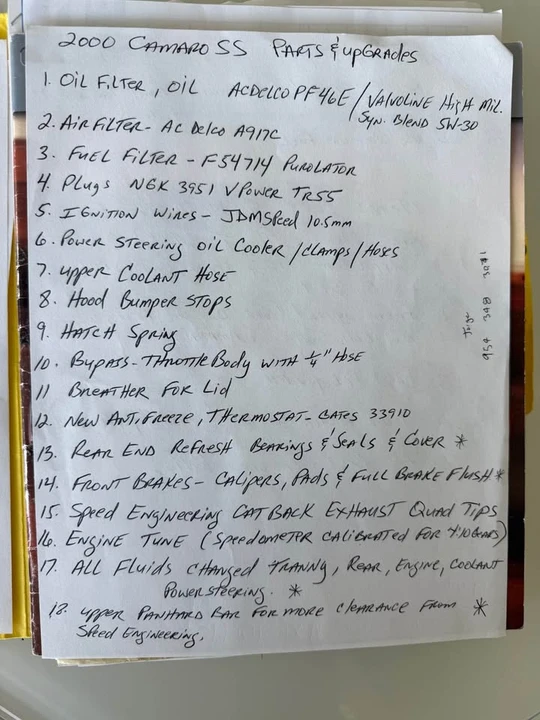 2000 CAMARO SS PARTS & UPGRADES
1. OIL FILTER, OIL ACDELCO PF46E / VALVOLINE HIGH MIL.
SYN. BLEND 5W-30
2. AIR FILTER - AC DELCO A917C
3. FUEL FILTER - F54714 PUROLATOR
4. Plugs NGK 3951 V POWER TR55
5. IGNITION WIRES - JDMSPEED 10.5mm
6. POWER STEERING OIL COOLER / CLAMPS / HOSES
7. UPPER COOLANT HOSE
8. HOOD BUMPER STOPS
9. HATCH SPRING
10. BYPASS - THROTTLE BODY WITH 1/4" HOSE
11 BREATHER FOR LID
12. NEW ANTIFREEZE, THERMOSTAT - GATES 33910
13. REAR END REFRESH BEARINGS & SEALS & COVER *
14. FRONT BRAKES - CALIPERS, PADS & FULL BRAKE FLUSH *
15. SPEED ENGINEERING CAT BACK EXHAUST QUAD TIPS
16. ENGINE TUNE (SPEEDOMETER CALIBRATED FOR GEARS)
17. ALL FLUIDS CHANGED TRANNY, REAR, ENGINE, COOLANT
POWER STEERING. *
18. UPPER PANHARD BAR FOR MORE CLEARANCE FROM *
SPEED ENGINEERING.
954 398